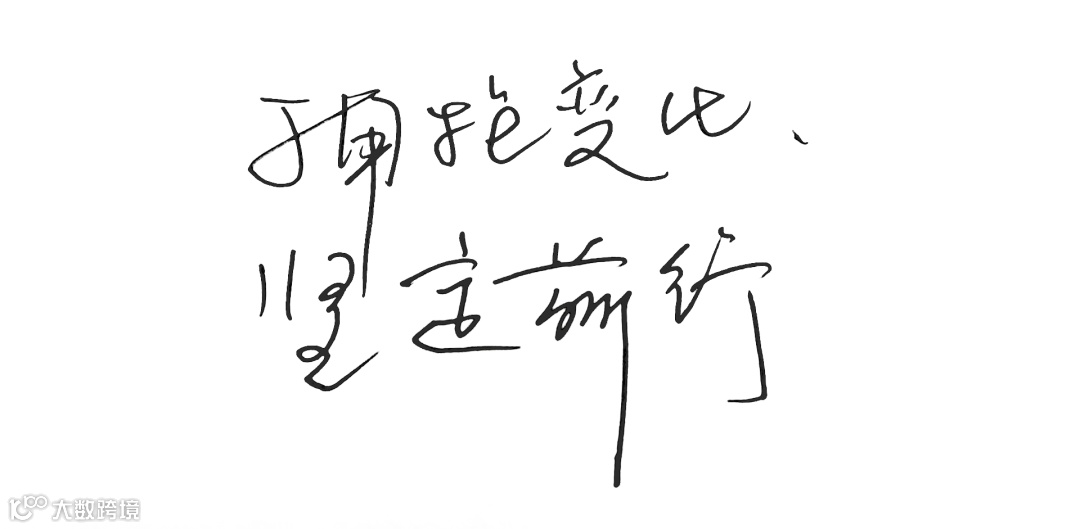 拥抱变化、
坚定前行
大数跨境